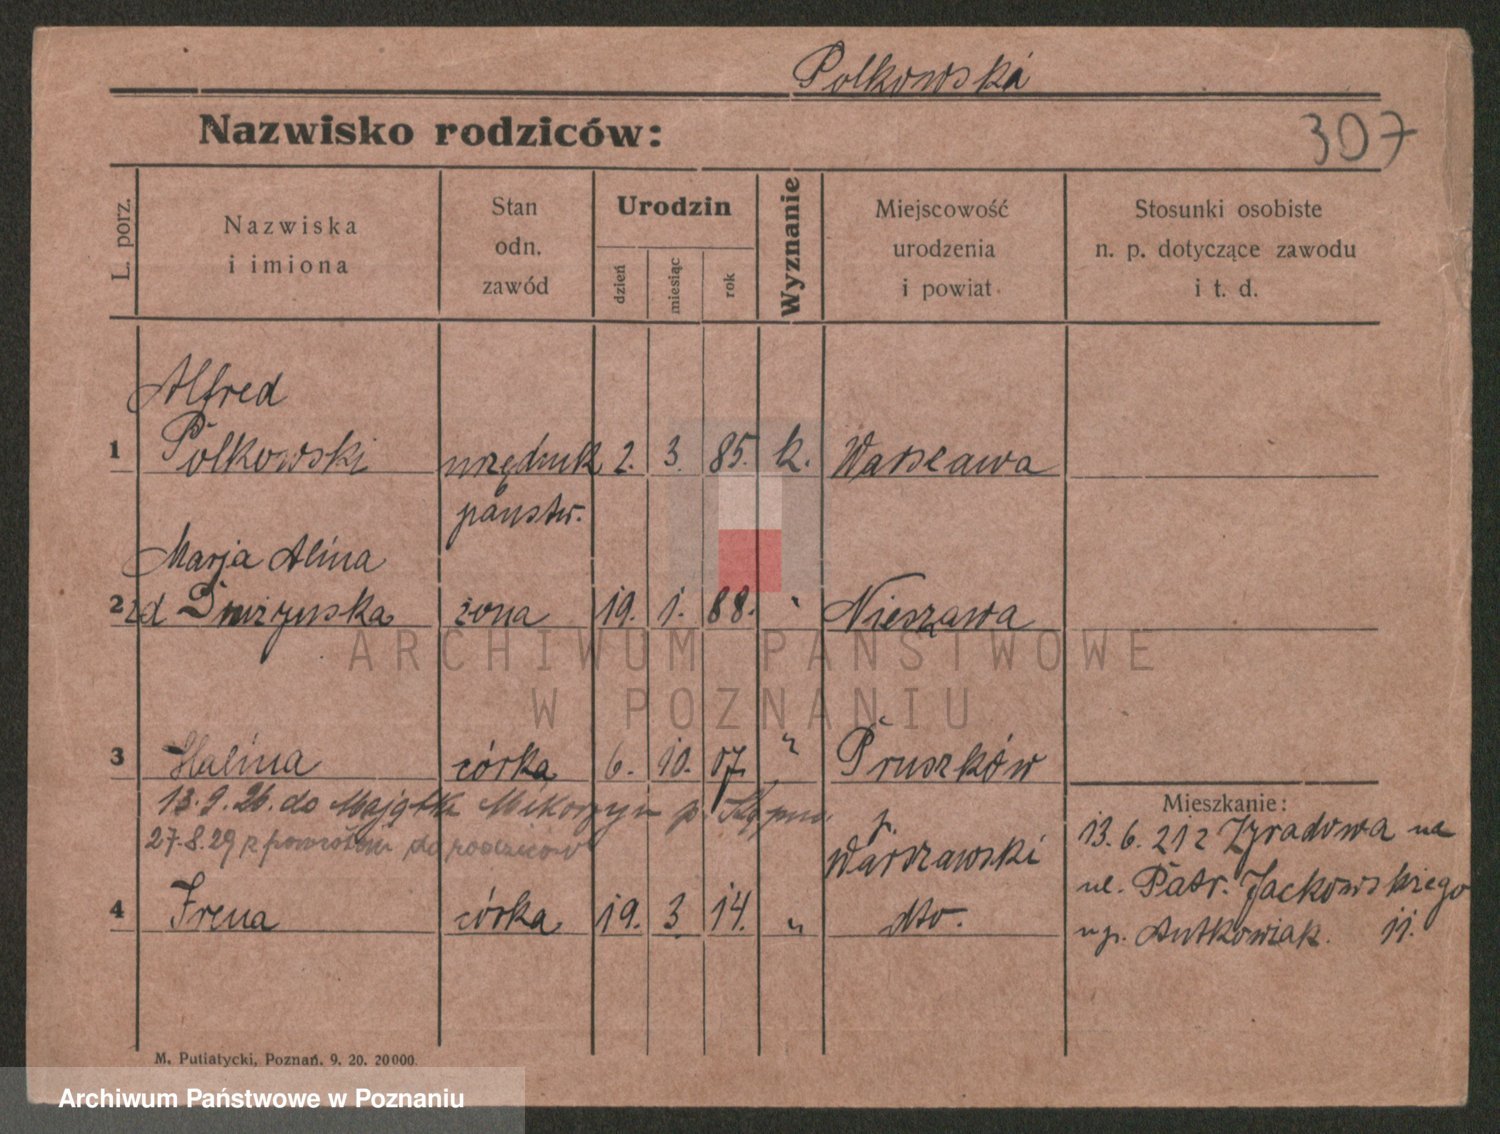 Polkowski
Nazwisko rodziców:
307
L. porz.
Nazwiska
i imiona
Stan
odn.
zawód
Urodzin
dzień
miesiąc
rok
Wyznanie
Miejscowość
urodzenia
i powiat
Stosunki osobiste
n. p. dotyczące zawodu
i t. d.
Alfred
1 Polkowski urzędnik 2. 3. 85. k. Warszawa
państw.
Marja Alina
2 zd żona 19. 1. 88. " Nieszawa
3 Halina córka 6. 10. 07. " Pruszków
13.9.26. do Majątku Mikorzyn p. Kępno
27.8.29 z powrotem do rodziców
p.
Warszawski
4 Irena córka 19. 3. 14. " dto.
Mieszkanie:
13.6.21 z
ul. Patr. Jackowskiego
up. Antkowiak. 11.
M. Putiatycki, Poznań. 9. 20. 20000.
ARCHIWUM PAŃSTWOWE
W POZNANIU
Archiwum Państwowe w Poznaniu